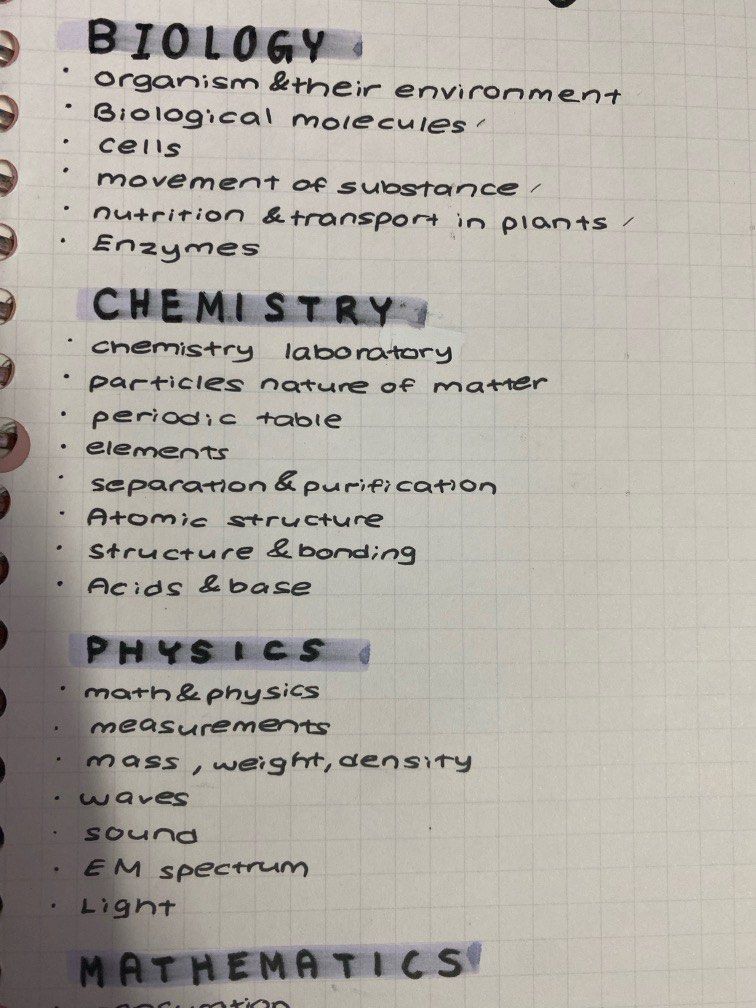 BIOLOGY
· organism & their environment
· Biological molecules
· cells
· movement of substance
· nutrition & transport in plants
· Enzymes
CHEMISTRY
· chemistry laboratory
· particles nature of matter
· periodic table
· elements
· separation & purification
· Atomic structure
· structure & bonding
· Acids & base
PHYSICS
· math & physics
· measurements
· mass, weight, density
· waves
· sound
· EM spectrum
· Light
MATHEMATICS